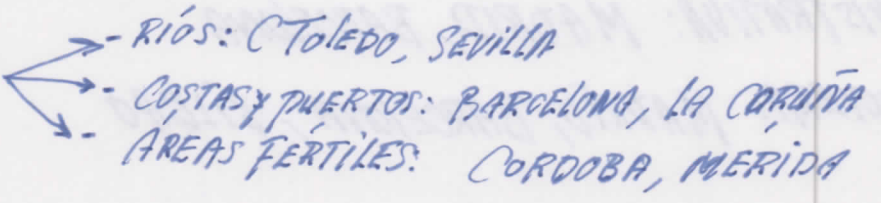 - RÍOS: CTOLEDO, SEVILLA
- COSTAS Y PUERTOS: BARCELONA, LA CORUÑA
- ÁREAS FÉRTILES: CORDOBA, MERIDA